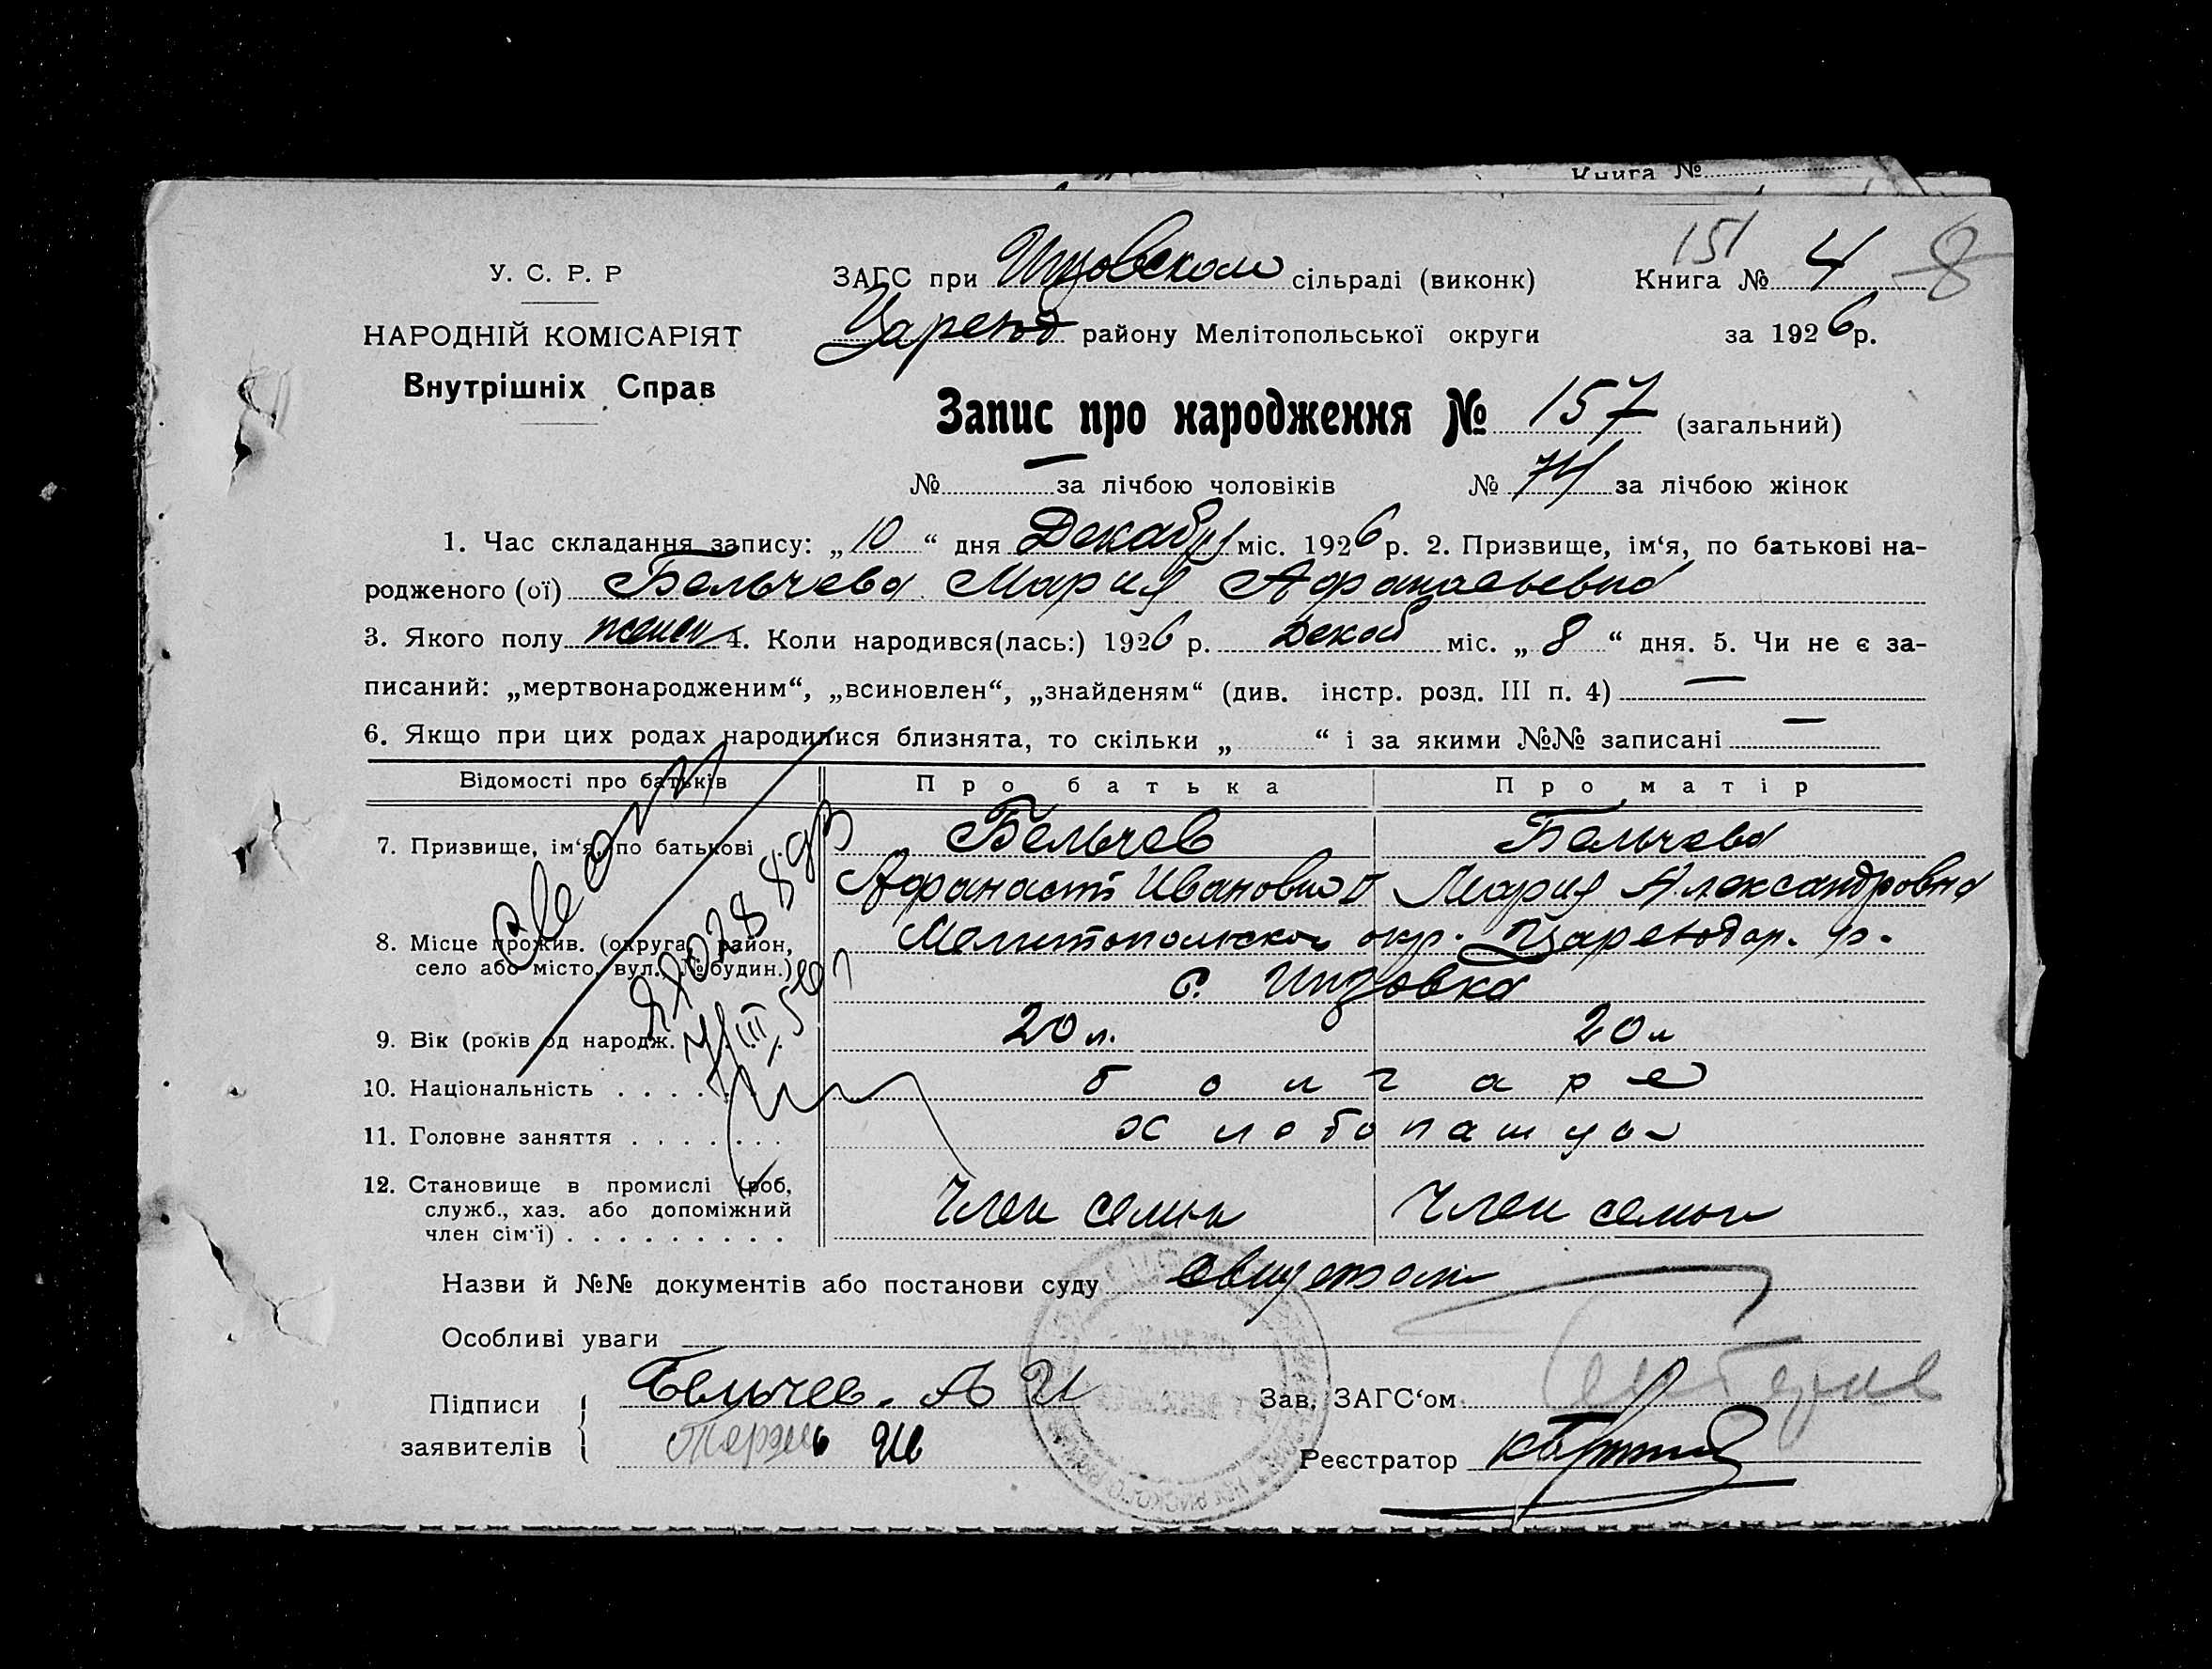 Книга №
151
У. С. Р. Р
ЗАГС при Инзовском сільраді (виконк)
Книга № 4 8
НАРОДНІЙ КОМІСАРІЯТ
Царевод району Мелітопольської округи
за 1926 р.
Внутрішніх Справ
Запис про народження № 157 (загальний)
№ — за лічбою чоловіків № 74 за лічбою жінок
1. Час складання запису: „10“ дня Декабря міс. 1926 р. 2. Призвище, ім‘я, по батькові на-
родженого (ої) Бельчева Мария Афанасьевна
3. Якого полу женск 4. Коли народився(лась:) 1926 р. Декаб міс. „8“ дня. 5. Чи не є за-
писаний: „мертвонародженим“, „всиновлен“, „знайденям“ (див. інстр. розд. III п. 4) —
6. Якщо при цих родах народилися близнята, то скільки „ “ і за якими №№ записані —
Відомості про батьків Про батька Про матір
7. Призвище, ім‘я, по батькові Бельчев Бельчева
Афанасий Иванович Мария Александровна
8. Місце прожив. (округа, район, Мелитопольской окр. Цареводар. р.
село або місто, вул. № будин.)
с. Инзовка
9. Вік (років од народж. 20 л. 20 л
10. Національність . . . . . . болгаре
11. Головне заняття . . . . . . . хлебопашцы
12. Становище в промислі (роб,
служб., хаз. або допоміжний член семьи член семьи
член сім‘ї) . . . . . . . . .
Назви й №№ документів або постанови суду
Особливі уваги
Підписи Бельчев. А И Зав. ЗАГС‘ом
заявителів Реєстратор